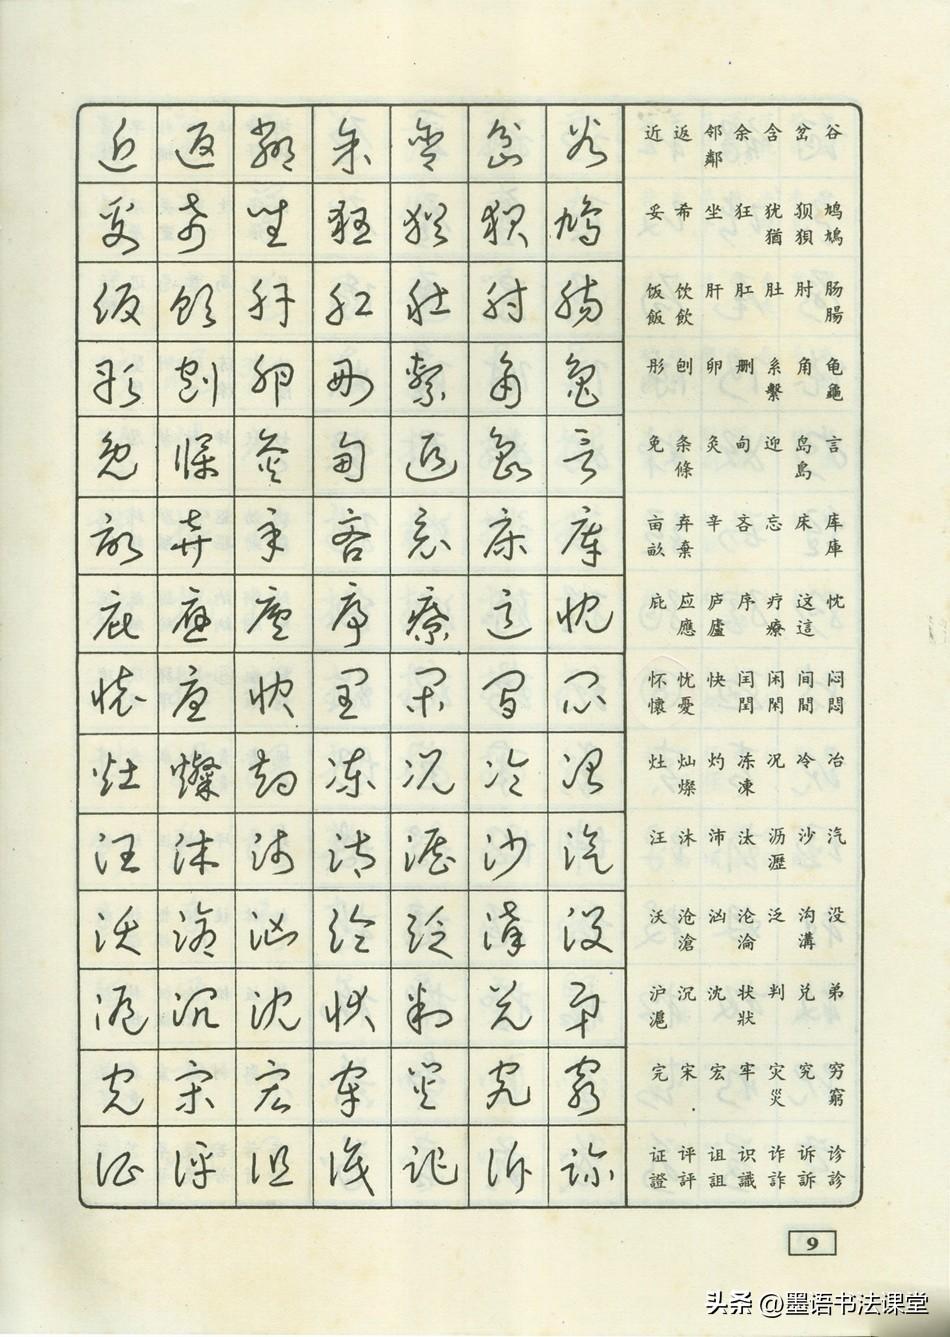 近 返 邻 余 含 岔 谷
鄰
妥 希 坐 狂 犹 狈 鸠
猶 狽 鳩
饭 饮 肝 肛 肚 肘 肠
飯 飲 腸
彤 刨 卵 删 系 角 龟
繫 龜
免 条 灸 甸 迎 岛 言
條 島
亩 弃 辛 吝 忘 床 库
畝 棄 庫
庇 应 庐 序 疗 这 忱
應 廬 療 這
怀 忧 快 闰 闲 间 闷
懷 憂 閏 閑 間 悶
灶 灿 灼 冻 况 冷 冶
燦 凍
汪 沐 沛 汰 沥 沙 汽
瀝
沃 沧 汹 沦 泛 沟 没
滄 淪 溝
沪 沉 沈 状 判 兑 弟
滬 狀
完 宋 宏 牢 灾 究 穷
災 窮
证 评 诅 识 诈 诉 诊
證 評 詛 識 詐 訴 診
9
头条 @墨语书法课堂